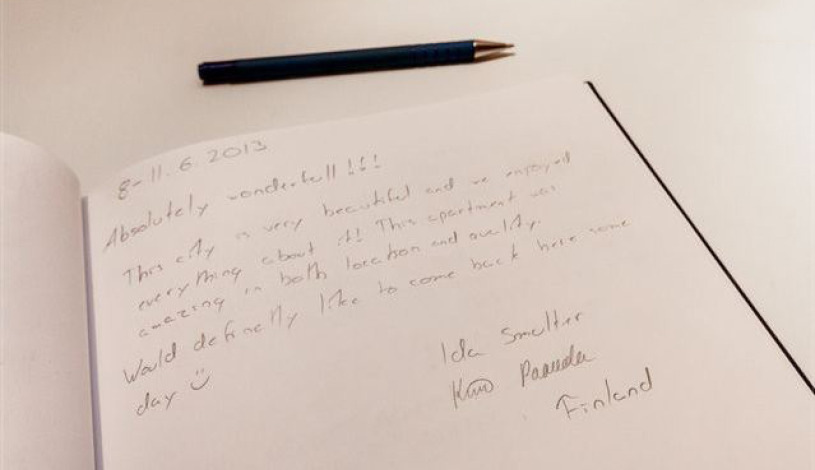 8-11.6.2013
Absolutely wonderfull!!!
This city is very beautiful and we enjoyed
everything about it! This apartment was
amazing in both location and quality.
Would definetly like to come back here some
day :)
Ida
Finland